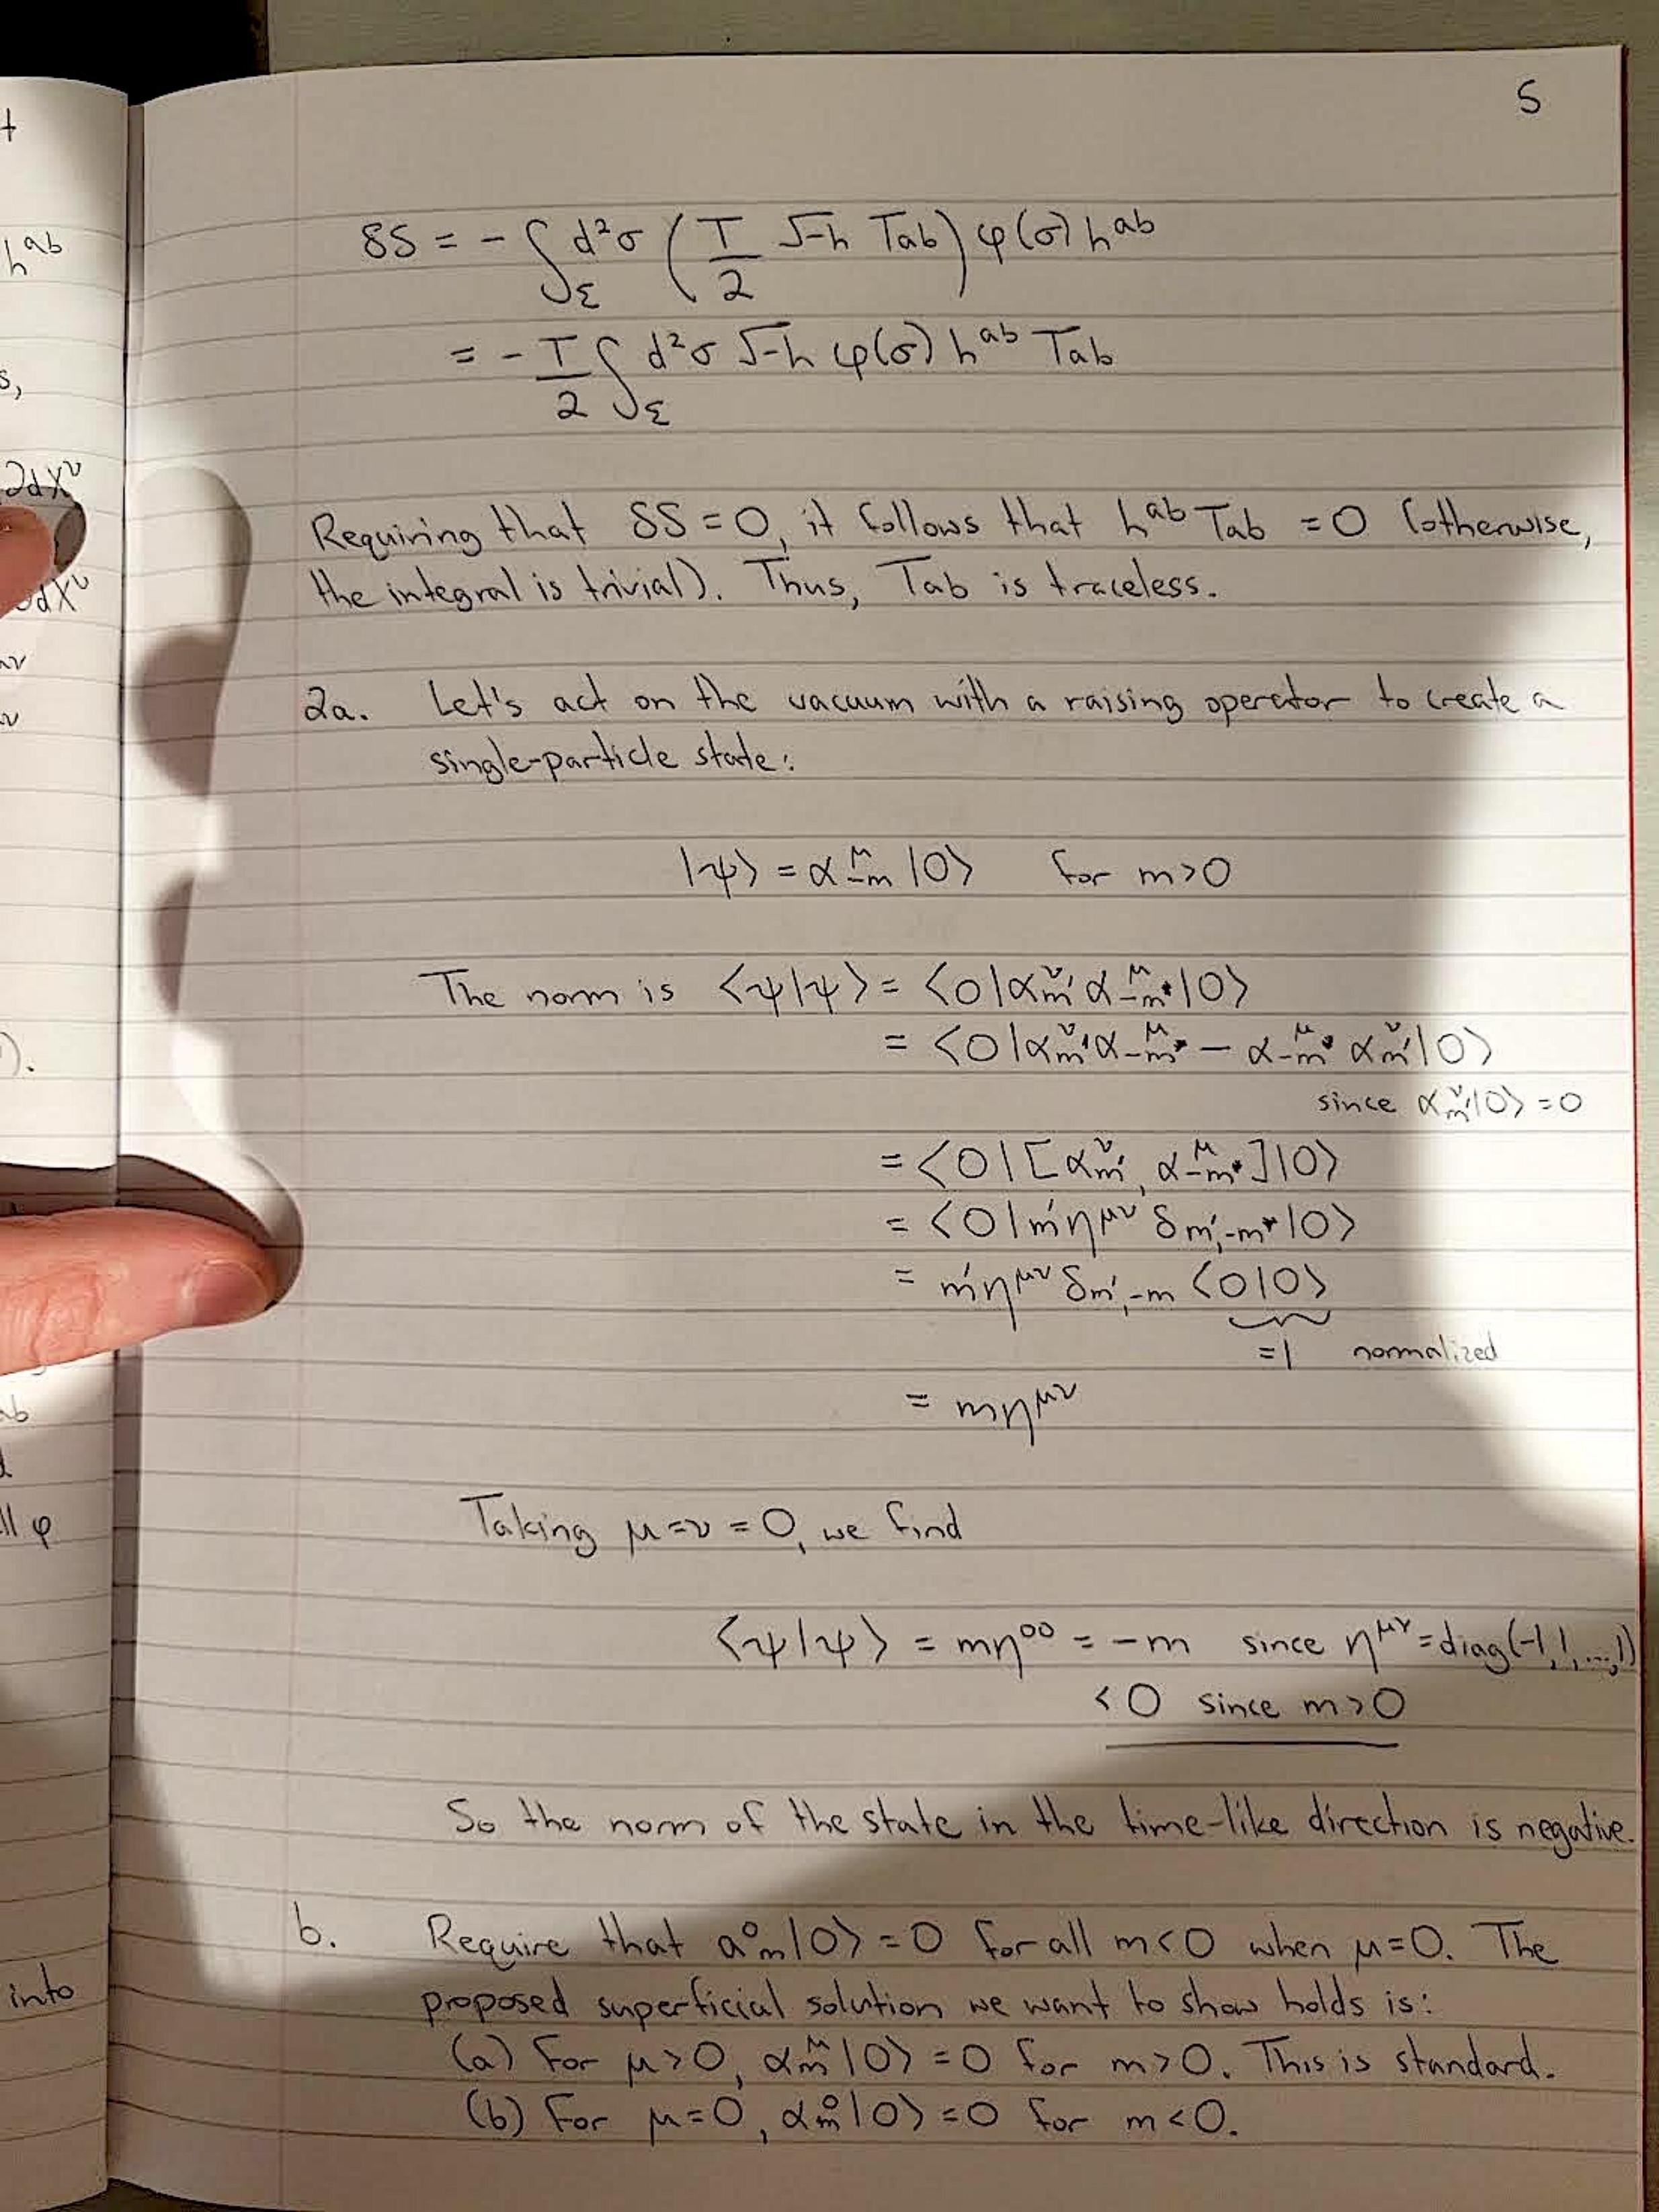 5
δS = - ∫_Σ d²σ (T/2 √-h Tab) φ(σ) h^ab
= - T/2 ∫_Σ d²σ √-h φ(σ) h^ab Tab
Requiring that δS = 0, it follows that h^ab Tab = 0 (otherwise,
the integral is trivial). Thus, Tab is traceless.
2a. Let's act on the vacuum with a raising operator to create a
single-particle state:
|ψ⟩ = α^μ_-m |0⟩ for m>0
The norm is ⟨ψ|ψ⟩ = ⟨0|α^ν_m' α^μ_-m|0⟩
= ⟨0|α^ν_m' α^μ_-m - α^μ_-m α^ν_m'|0⟩
since α^ν_m'|0⟩ = 0
= ⟨0|[α^ν_m', α^μ_-m]|0⟩
= ⟨0|m'η^μν δ_m',-m|0⟩
= m'η^μν δ_m',-m ⟨0|0⟩
=1 normalized
= mη^μν
Taking μ=ν=0, we find
⟨ψ|ψ⟩ = mη^00 = -m since η^μν = diag(-1,1,...,1)
<0 since m>0
So the norm of the state in the time-like direction is negative.
b. Require that a^0_m|0⟩ = 0 for all m<0 when μ=0. The
proposed superficial solution we want to show holds is:
(a) For μ>0, α^μ_m|0⟩ = 0 for m>0. This is standard.
(b) For μ=0, α^0_m|0⟩ = 0 for m<0.
h^ab
s,
∂dX^ν
dX^ν
).
ll φ
into